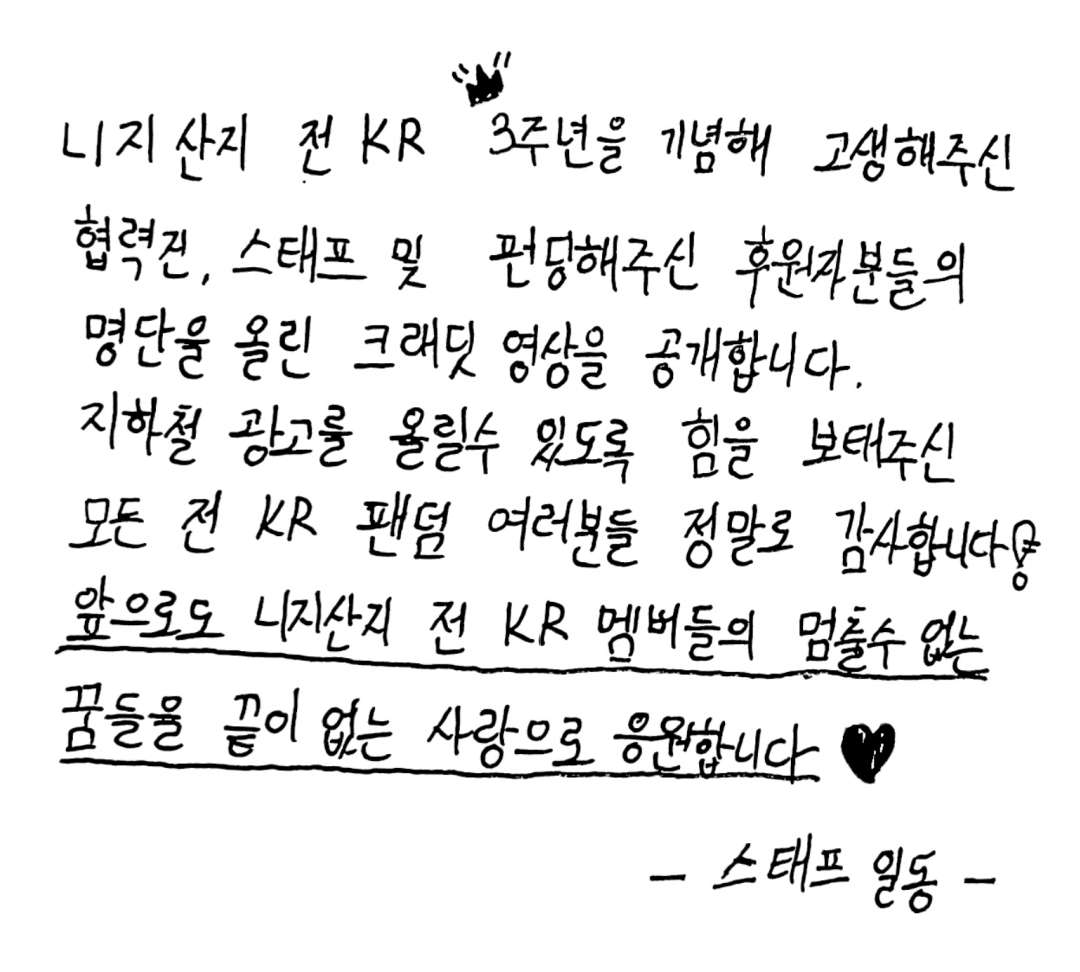 니지산지 전 KR 3주년을 기념해 고생해주신
협력진, 스태프 및 펀딩해주신 후원자분들의
명단을 올린 크래딧 영상을 공개합니다.
지하철 광고를 올릴수 있도록 힘을 보태주신
모든 전 KR 팬덤 여러분들 정말로 감사합니다!
앞으로도 니지산지 전 KR 멤버들의 멈출수 없는
꿈들을 끝이 없는 사랑으로 응원합니다
- 스태프 일동 -